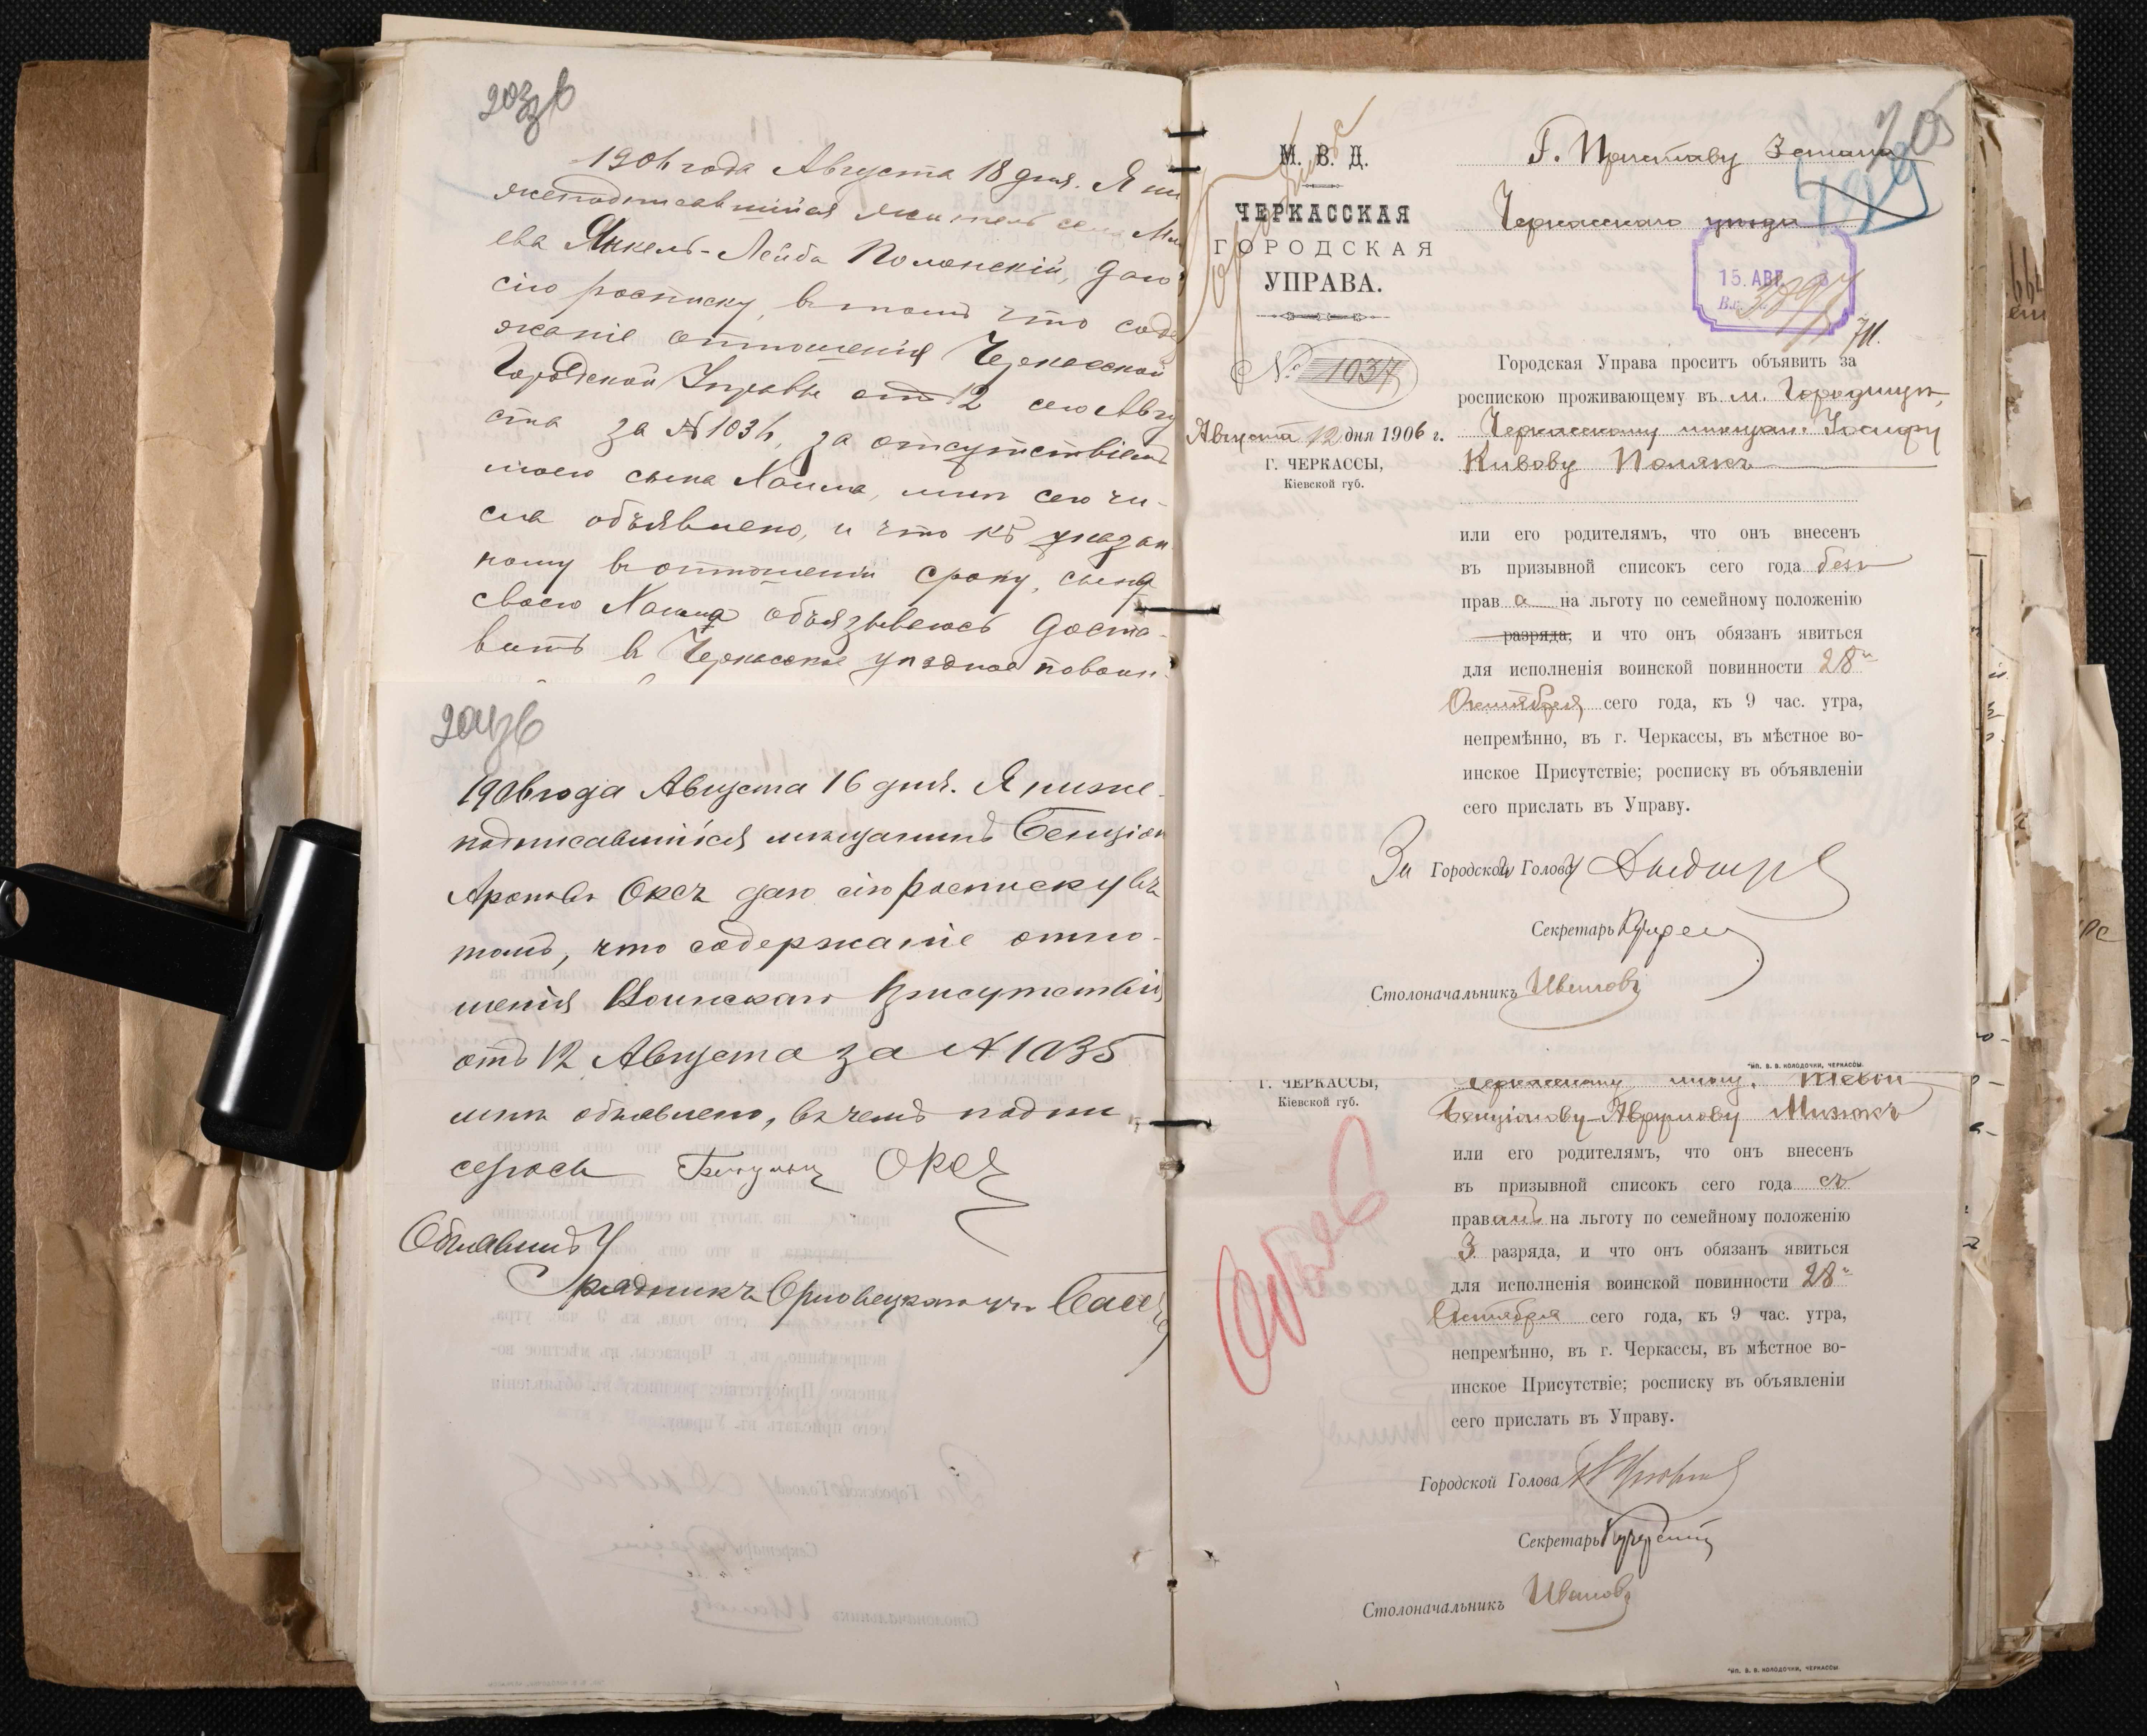 203 зв
1906 года Августа 18 дня. Я ни
жеподписавшийся житель села Мли
ева Янкель-Лейба Полонскій, даю
сію росписку, въ томъ что соде
жаніе отношенія Черкасской
Городской Управы отъ 12 сего Авгу
ста за № 1036, за отсутствіемъ
моего сына Хаима, мнѣ сего чи-
сла объявлено, и что къ указан
ному въ отношеніи сроку, сына
своего Хаима обязываюсь доста-
вить въ Черкасское уѣздное повоин.
204 зв
1906 года Августа 16 дня. Я ниже-
подписавшійся мѣщанинъ Бенціон
Ароновъ Оксъ даю сію росписку въ
томъ, что содержаніе отно-
шенія Воинскаго Присутствія
отъ 12 Августа за № 1035
мнѣ объявлено, въ чемъ подпи
суюсь Оксъ
Объявилъ
Урядникъ Орловецкаго уч.
205
Г. Приставу 3 стана
Черкасскаго уѣзда
М. В. Д.
ЧЕРКАССКАЯ
ГОРОДСКАЯ
УПРАВА.
15. АВГ.
№ 1037
Августа 12 дня 1906 г.
Г. ЧЕРКАССЫ,
Кіевской губ.
Городская Управа проситъ объявить за
роспискою проживающему въ м. Городищѣ,
Черкасскому мѣщан. Іосифу
Кивову Полякъ
или его родителямъ, что онъ внесенъ
въ призывной списокъ сего года безъ
права на льготу по семейному положенію
разряда, и что онъ обязанъ явиться
для исполненія воинской повинности 28го
Октября сего года, къ 9 час. утра,
непремѣнно, въ г. Черкассы, въ мѣстное во-
инское Присутствіе; росписку въ объявленіи
сего прислать въ Управу.
За Городской Голову
Секретарь
Столоначальникъ Ивановъ
ТИП. В. В. КОЛОДОЧКИ, ЧЕРКАССЫ.
Г. ЧЕРКАССЫ,
Кіевской губ.
Черкасскому мѣщ.
Бенціонову-Аврумову
или его родителямъ, что онъ внесенъ
въ призывной списокъ сего года съ
правами на льготу по семейному положенію
3 разряда, и что онъ обязанъ явиться
для исполненія воинской повинности 28го
Октября сего года, къ 9 час. утра,
непремѣнно, въ г. Черкассы, въ мѣстное во-
инское Присутствіе; росписку въ объявленіи
сего прислать въ Управу.
Городской Голова
Секретарь
Столоначальникъ Ивановъ
ТИП. В. В. КОЛОДОЧКИ, ЧЕРКАССЫ.